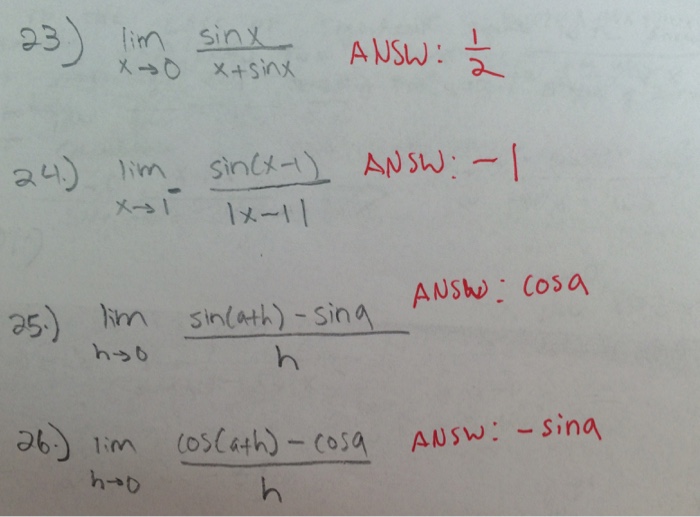 23.) lim x→0 sinx / x+sinx ANSW: 1/2
24.) lim x→1⁻ sin(x-1) / |x-1| ANSW: -1
25.) lim h→0 sin(a+h) - sina / h ANSW: cosa
26.) lim h→0 cos(a+h) - cosa / h ANSW: - sina